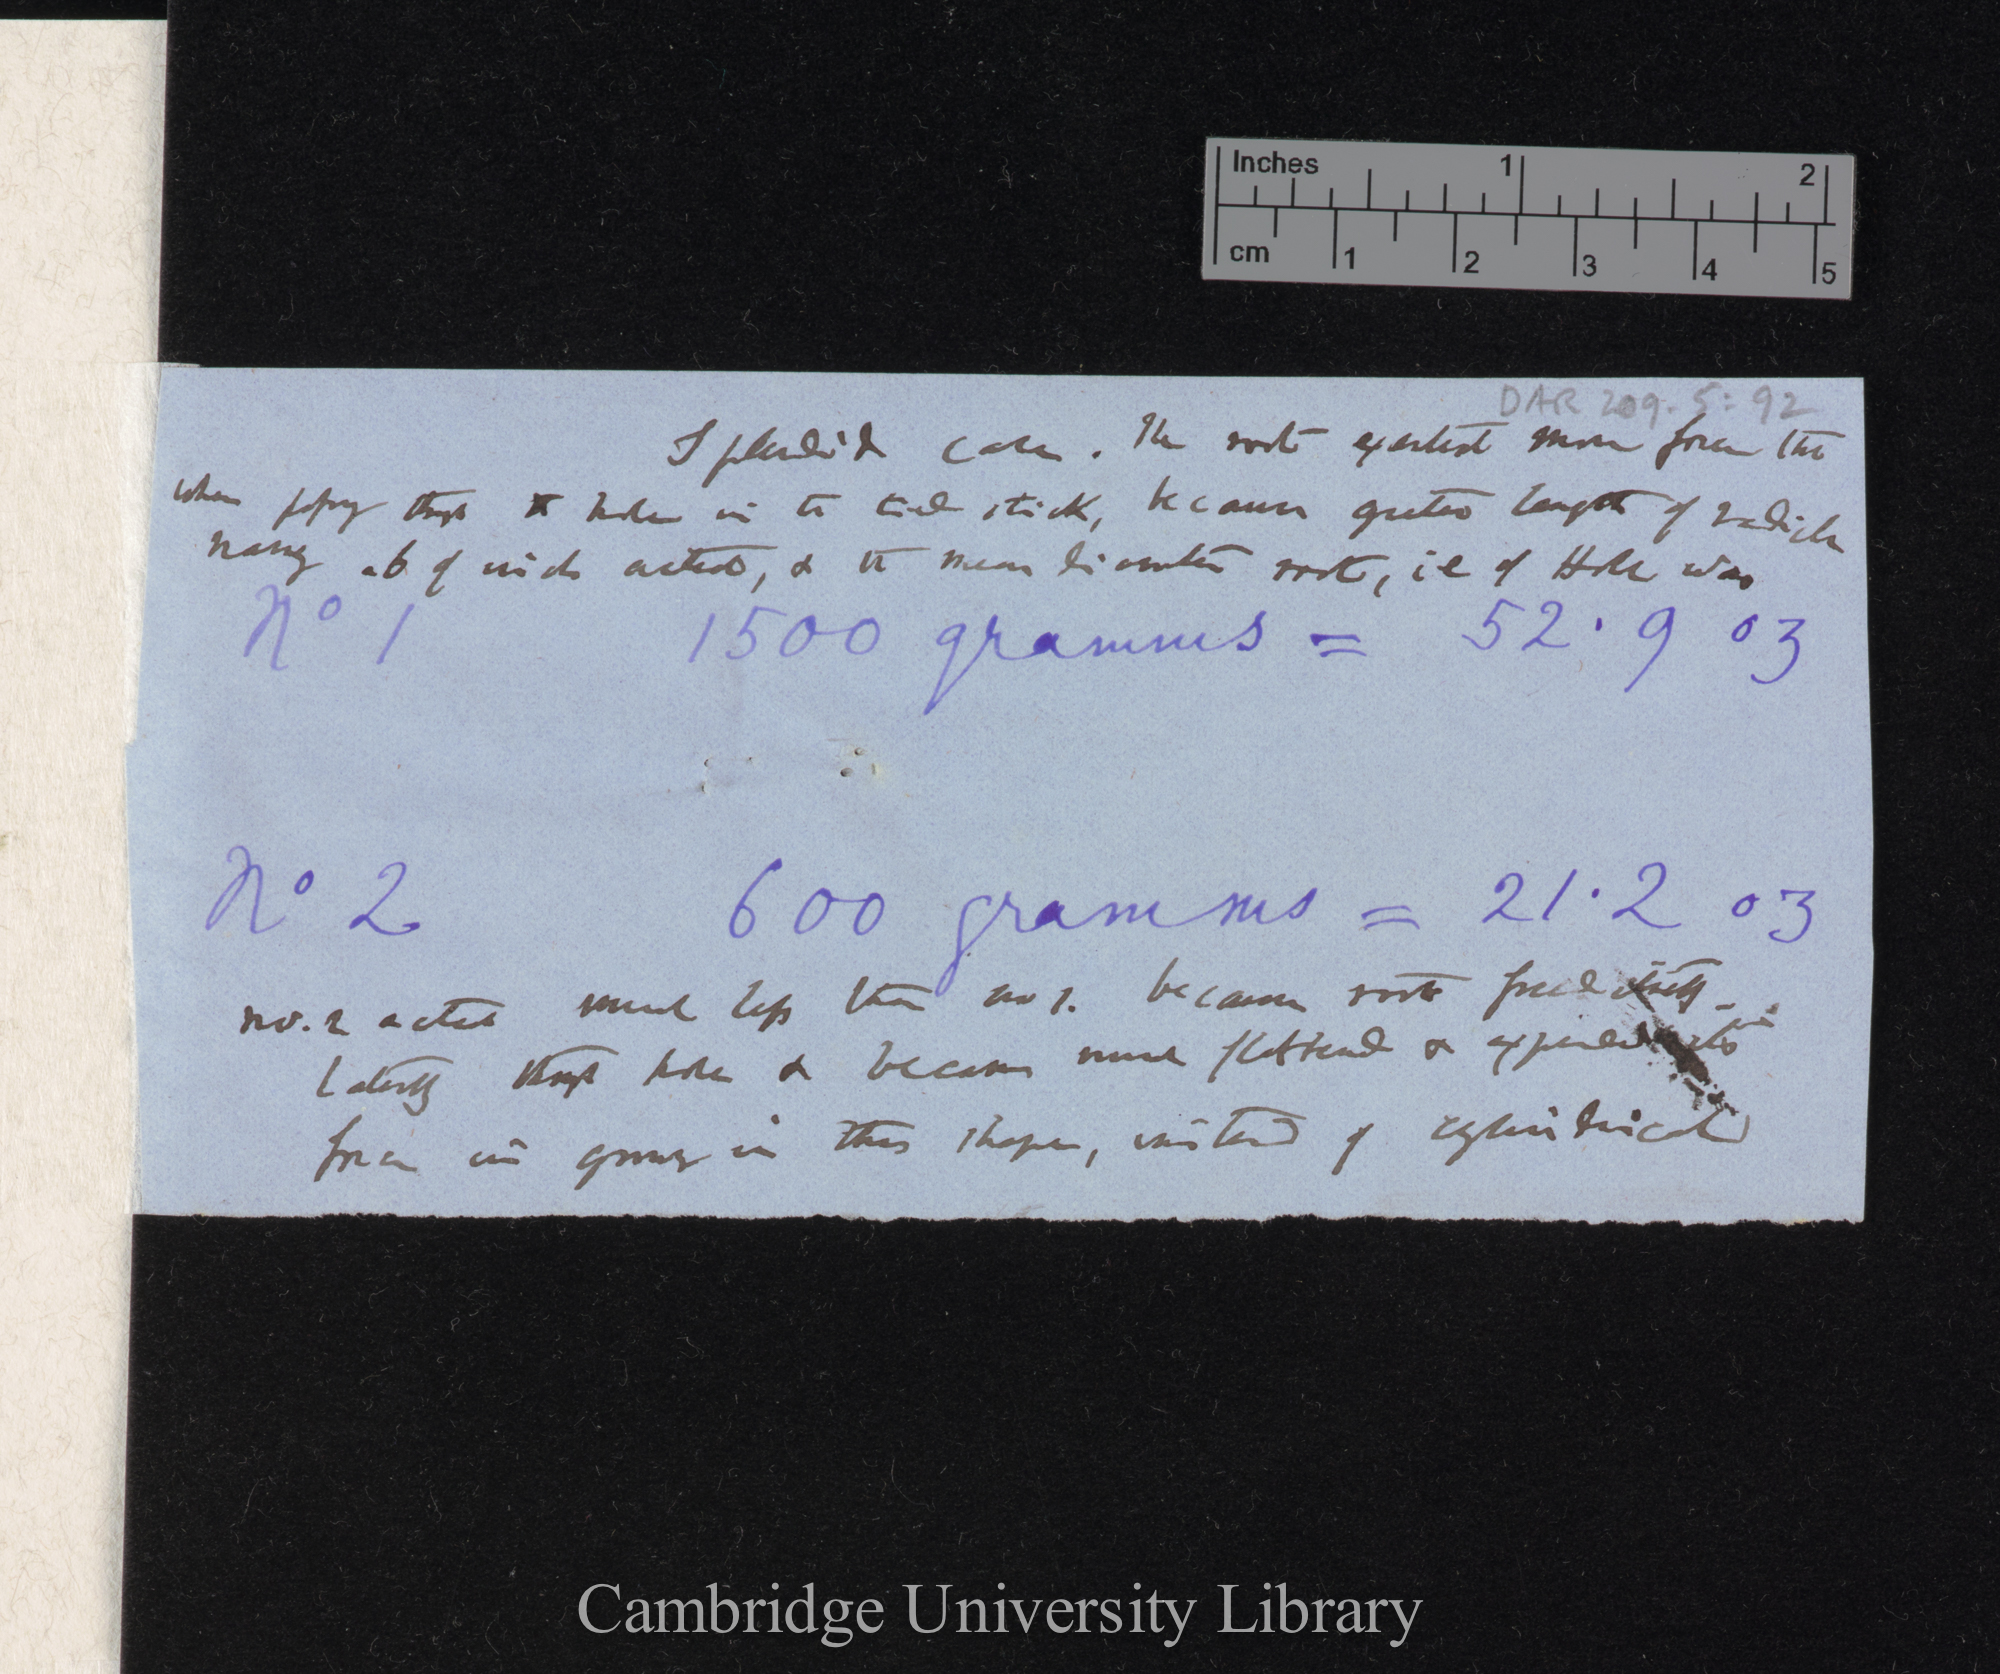 Inches 1 2
cm 1 2 3 4 5
DAR 209.5:92
Splendid case. The root exerted more force
when through hole in stick, because greater length of radicle
nearly .6 of inch acted, & the mean diameter root, i.e. of Hole was
No 1 1500 gramms = 52.9 oz
No 2 600 gramms = 21.2 oz
no. 2 acted much less than no 1. because root freed itself
laterally through hole & became much flattened & expended its
force in growing in this shape, instead of cylindrical
Cambridge University Library